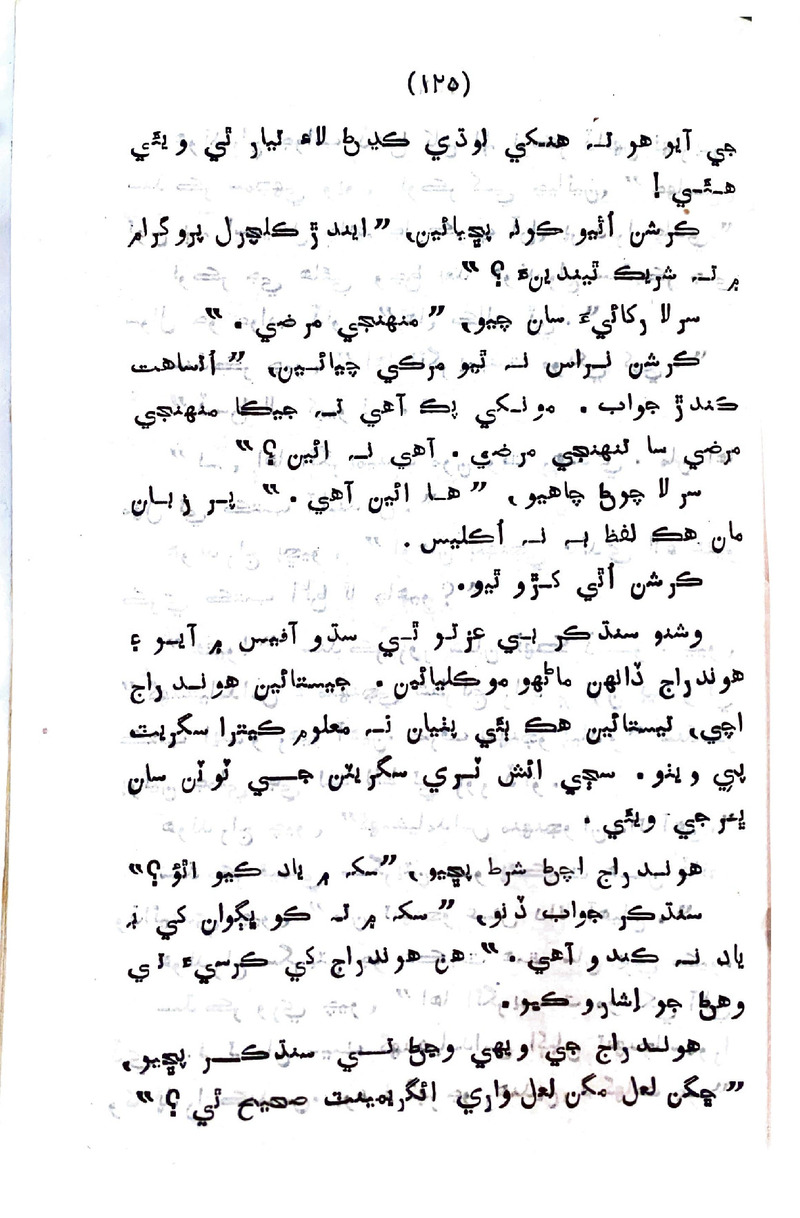 (۱۲۵)
جي آيو هو تہ هنکي لوڌي ڪڍڻ لاءِ تيار ٿي ويئي
هئي !
ڪرشن اُٿيو ڪونہ پڇيائين، ”ايندڙ ڪلچرل پروگرام
۾ تہ شريڪ ٿيندينءَ ؟“
سرلا رکائيءَ سان چيو، ”منهنجي مرضي .“
ڪرشن نراس نہ ٿيو مرڪي چيائين، ”اُتساهت
ڪندڙ جواب . مونکي پڪ آهي تہ جيڪا منهنجي
مرضي سا تنهنجي مرضي . آهي نہ ائين ؟“
سرلا چوڻ چاهيو، ”ها ائين آهي .“ پر زبان
مان هڪ لفظ بہ نہ اُڪليس .
ڪرشن اُٿي کڙو ٿيو .
وشنو سنڌڪر بي عزتو ٿي سڌو آفيس ۾ آيو ۽
هوندراج ڏانهن ماڻهو موڪليائين . جيستائين هوندراج
اچي، تيستائين هڪ ٻئي پٺيان نہ معلوم ڪيترا سگريٽ
پي ويو . سڄي ائش ٽري سگريٽن جي ٽوٽن سان
ڀرجي ويئي .
هوندراج اچڻ شرط پڇيو، ”سک ۾ ياد ڪيو اٿؤ ؟“
سنڌڪر جواب ڏنو، ”سک ۾ تہ ڪو ڀڳوان کي بہ
ياد نہ ڪندو آهي .“ هن هوندراج کي ڪرسيءَ تي
وهڻ جو اِشارو ڪيو .
هوندراج جي ويهي وڃڻ تي سنڌڪر پڇيو،
”ڇگن لعل مگن لعل واري ائگريمينٽ صحيح ٿي ؟“